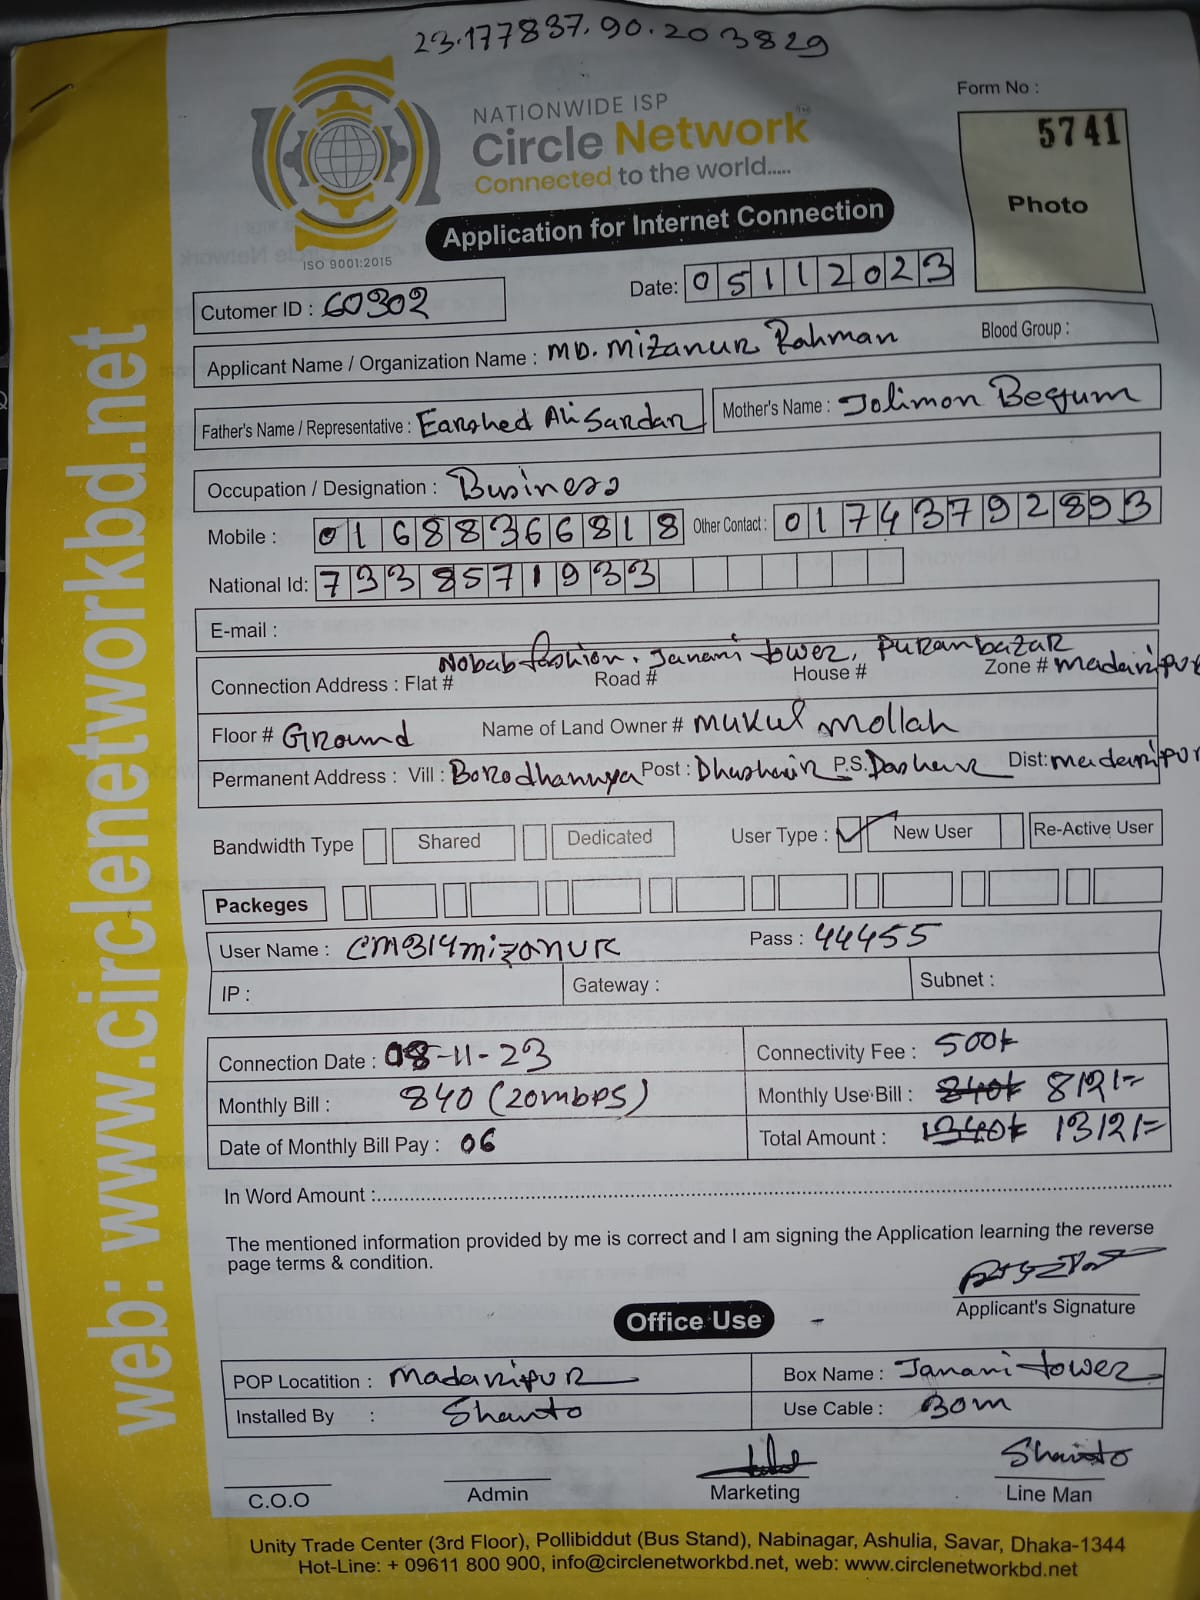 23.177837, 90.203829
NATIONWIDE ISP
Circle Network
Connected to the world.....
ISO 9001:2015
Form No :
5741
Photo
Application for Internet Connection
Date: 05112023
Cutomer ID : 60302
Applicant Name / Organization Name : MD. Mizanur Rahman Blood Group :
Father's Name / Representative : Earshed Ali Sardar Mother's Name : Jolimon Begum
Occupation / Designation : Business
Mobile : 01688366818 Other Contact : 01743792893
National Id: 7338571933
E-mail :
Nobab fashion, Janani tower, Puranbazar
Connection Address : Flat # Road # House # Zone # madaripur
Floor # Ground Name of Land Owner # Mukul mollah
Permanent Address : Vill : Post : P.S. Dist: madaripur
Bandwidth Type Shared Dedicated User Type : New User Re-Active User
Packeges
User Name : CMB14mizanur Pass : 44455
IP : Gateway : Subnet :
Connection Date : 08-11-23 Connectivity Fee : 500
Monthly Bill : 840 (20mbps) Monthly Use Bill : 840 812/=
Date of Monthly Bill Pay : 06 Total Amount : 1340 1312/=
In Word Amount :
The mentioned information provided by me is correct and I am signing the Application learning the reverse
page terms & condition.
Applicant's Signature
Office Use
POP Locatition : Madaripur Box Name : Janani tower
Installed By : Shanto Use Cable : 30m
Shanto
C.O.O Admin Marketing Line Man
Unity Trade Center (3rd Floor), Pollibiddut (Bus Stand), Nabinagar, Ashulia, Savar, Dhaka-1344
Hot-Line: + 09611 800 900, info@circlenetworkbd.net, web: www.circlenetworkbd.net
web: www.circlenetworkbd.net